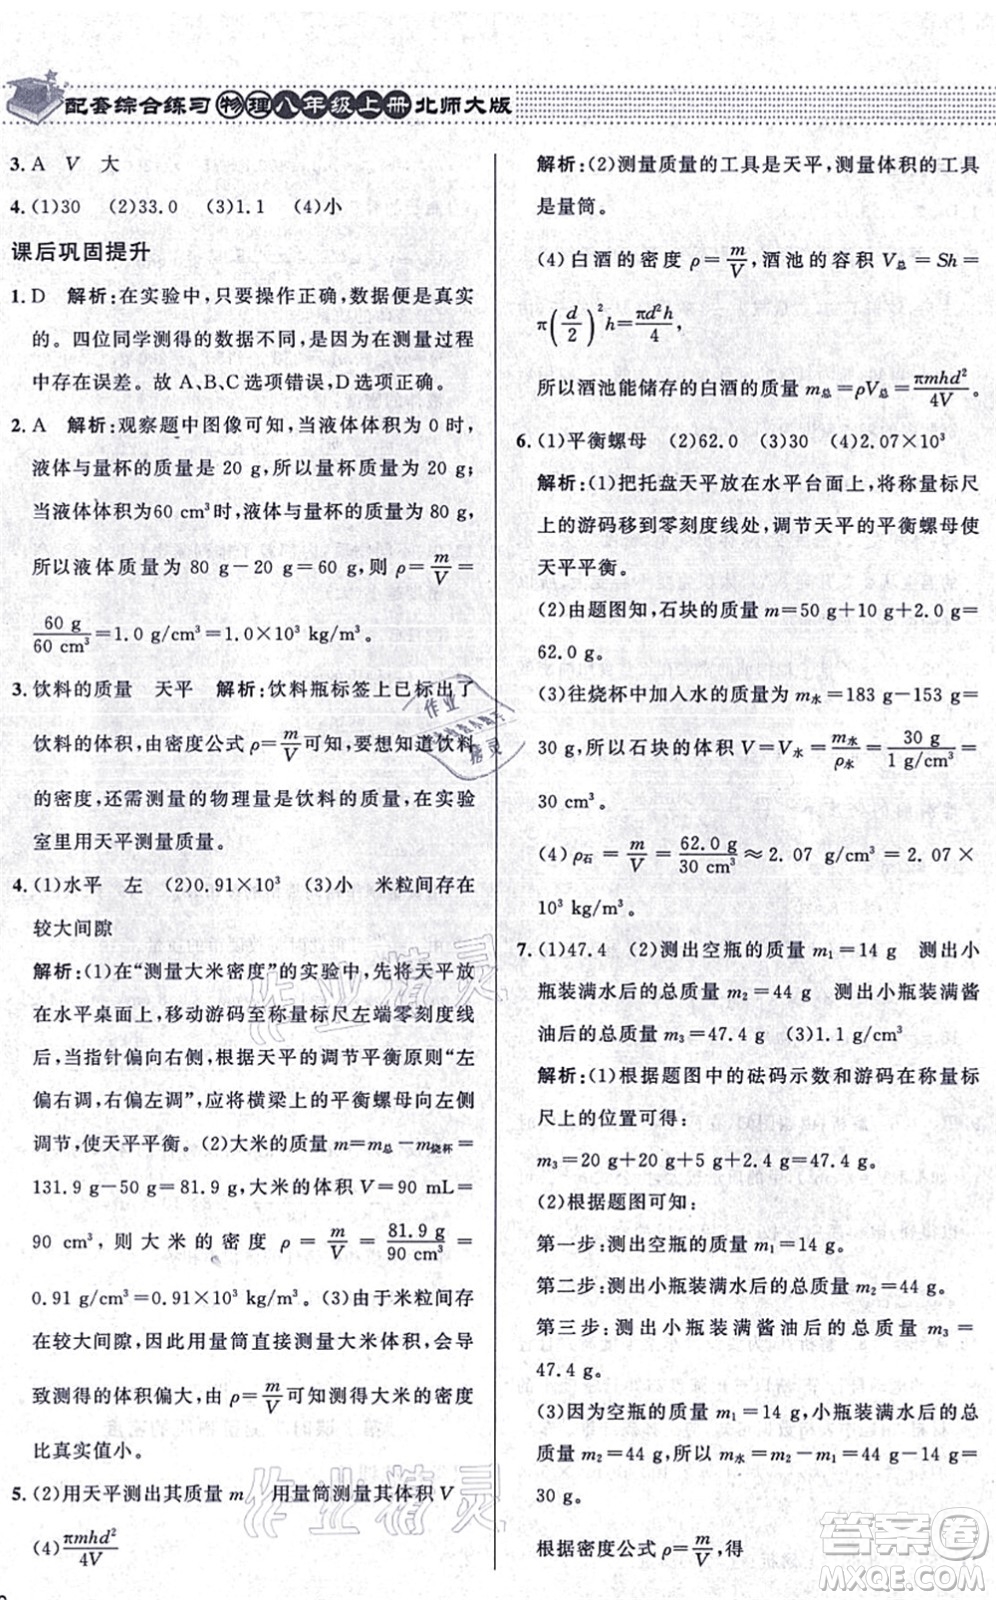 配套综合练习 物理八年级上册 北师大版
3. A V 大
4. (1)30 (2)33.0 (3)1.1 (4)小
课后巩固提升
1. D 解析:在实验中,只要操作正确,数据便是真实
的。四位同学测得的数据不同,是因为在测量过
程中存在误差。故 A、B、C 选项错误,D 选项正确。
2. A 解析:观察题中图像可知,当液体体积为 0 时,
液体与量杯的质量是 20 g,所以量杯质量为 20 g;
当液体体积为60 cm³时,液体与量杯的质量为 80 g,
所以液体质量为 80 g-20 g=60 g,则 ρ=m/V=
60 g/60 cm³=1.0 g/cm³=1.0×10³ kg/m³。
3. 饮料的质量 天平 解析:饮料瓶标签上已标出了
饮料的体积,由密度公式 ρ=m/V可知,要想知道饮料
的密度,还需测量的物理量是饮料的质量,在实验
室里用天平测量质量。
4. (1)水平 左 (2)0.91×10³ (3)小 米粒间存在
较大间隙
解析:(1)在“测量大米密度”的实验中,先将天平放
在水平桌面上,移动游码至称量标尺左端零刻度线
后,当指针偏向右侧,根据天平的调节平衡原则“左
偏右调,右偏左调”,应将横梁上的平衡螺母向左侧
调节,使天平平衡。(2)大米的质量 m=m总-m烧杯=
131.9 g-50 g=81.9 g,大米的体积 V=90 mL=
90 cm³,则大米的密度 ρ=m/V=81.9 g/90 cm³=
0.91 g/cm³=0.91×10³ kg/m³。(3)由于米粒间存
在较大间隙,因此用量筒直接测量大米体积,会导
致测得的体积偏大,由 ρ=m/V可知测得大米的密度
比真实值小。
5. (2)用天平测出其质量 m 用量筒测量其体积 V
(4)πmhd²/4V
解析:(2)测量质量的工具是天平,测量体积的工具
是量筒。
(4)白酒的密度 ρ=m/V,酒池的容积 V总=Sh=
π(d/2)²h=πd²h/4,
所以酒池能储存的白酒的质量 m总=ρV总=πmhd²/4V。
6. (1)平衡螺母 (2)62.0 (3)30 (4)2.07×10³
解析:(1)把托盘天平放在水平台面上,将称量标尺
上的游码移到零刻度线处,调节天平的平衡螺母使
天平平衡。
(2)由题图知,石块的质量 m=50 g+10 g+2.0 g=
62.0 g。
(3)往烧杯中加入水的质量为 m水=183 g-153 g=
30 g,所以石块的体积 V=V水=m水/ρ水=30 g/1 g/cm³=
30 cm³。
(4)ρ石=m/V=62.0 g/30 cm³≈2.07 g/cm³=2.07×
10³ kg/m³。
7. (1)47.4 (2)测出空瓶的质量 m₁=14 g 测出小
瓶装满水后的总质量 m₂=44 g 测出小瓶装满酱
油后的总质量 m₃=47.4 g (3)1.1 g/cm³
解析:(1)根据题图中的砝码示数和游码在称量标
尺上的位置可得:
m₃=20 g+20 g+5 g+2.4 g=47.4 g。
(2)根据题图可知:
第一步:测出空瓶的质量 m₁=14 g。
第二步:测出小瓶装满水后的总质量 m₂=44 g。
第三步:测出小瓶装满酱油后的总质量 m₃=
47.4 g。
(3)因为空瓶的质量 m₁=14 g,小瓶装满水后的总
质量 m₂=44 g,所以 m水=m₂-m₁=44 g-14 g=
30 g。
根据密度公式 ρ=m/V,得
作业精灵
作业精灵
答案卷
MXQE.COM